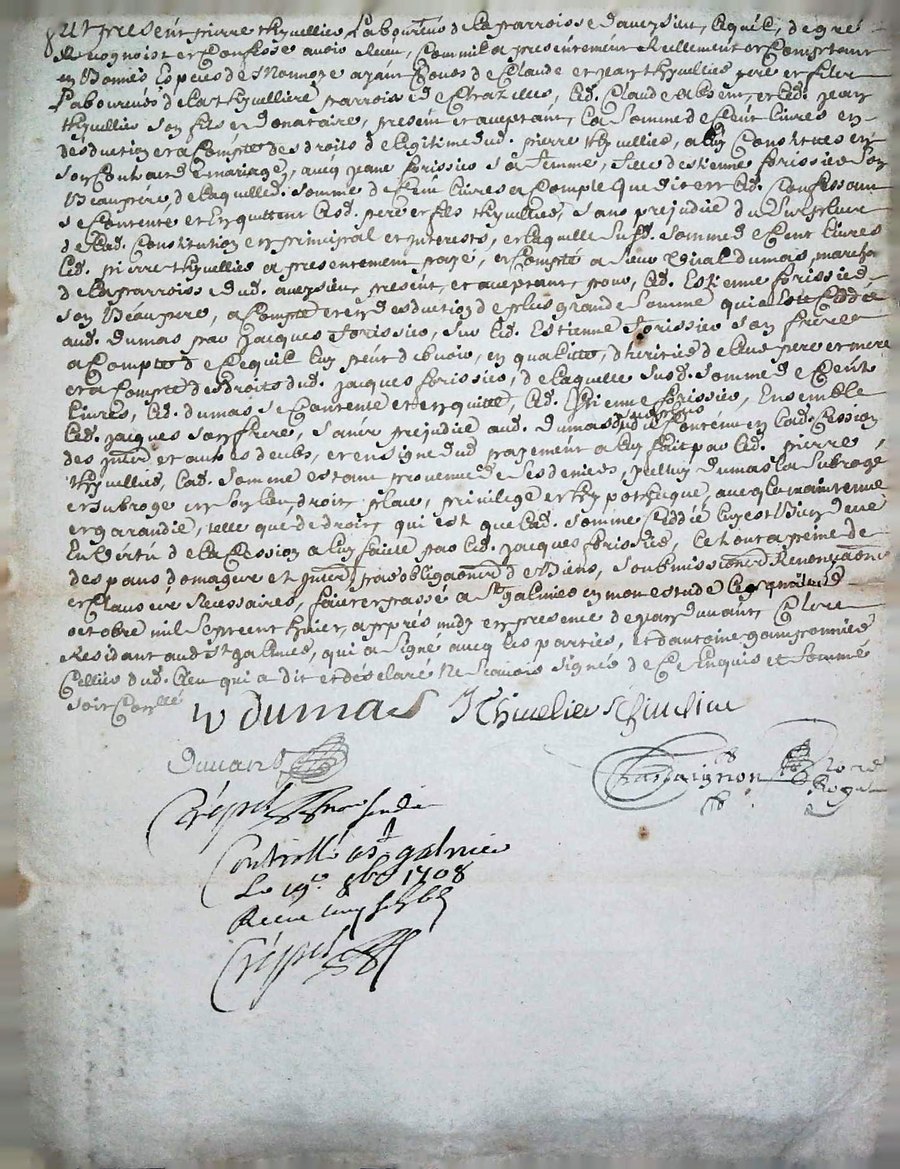 fut present pierre thyvellier Laboureur de la parroisse d'aveysieu, Lequel, de gré
Recognoist et Confesse avoir Receu, Comme il a presentement Reellement et Comptant
en bonnes Especes de Monnoye ayant Cours de Claude et jean thyvellier pere et fils
Laboureurs de la thyvelliere parroisse de Chazelles, led. Claude absent, et led. jean
thyvellier son fils et donataire, present et aceptant, La Somme de Cent livres en
desduction et a Compte des droits de Legitime dud. pierre thyvellier, a luy Constitués en
son Contract de mariage, avecq jeane forissier sa femme, fille d'estienne forissier son
Beaupere, de laquelle d. somme de Cent livres a Compte que dit est led. Confessant
se Contente et En quitte lesd. pere et fils thyvellier, sans prejudice du Surplus
de lad. Constitution en principal et interests, et laquelle susd. somme de Cent livres
led. pierre thyvellier a presentement payé, et Compté a sieur Vidal dumas, march
de la parroisse dud. aveysieu, present, et aceptant, pour led. Estienne forissier
son Beaupere, a Compte et en desduction de plus grande somme qui a esté Ceddée
aud. dumas par jacques forissier, sur led. Estienne forissier son frere
a Compte de Ce qu'il luy peut debvoir, en qualitté d'heritier de leur pere et mere
et a Compte des droits dud. jacques forissier, de laquelle susd. somme de Cent
livres, led. dumas se Contente et en quitte, led. Estienne forissier, Ensemble
led. jacques son frere, sans prejudice aud. dumas du surplus Contenu en lad. Cession
des jnterests et autres deubs, et en signe dud. payement a luy fait par led. pierre
thyvellier, lad. somme estant provenue de ses deniers, jcelluy dumas la subrogé
et subroge en son lieu, droit, place, privilege et hypotheque, avecq la maintenue
et garandie, telle que de droit, qui est que lad. somme Ceddée luy est bien deue
En Vertu de la Cession a luy faite par led. jacques forissier, Le tout a peine de
des pans domages et jnterests, sous obligaons de Biens, soubmissions Renonçaons
et Clauses Necessaires, fait et passé a St galmier en mon estude le
octobre mil sept cent huict, appres midy en presence de gaspard duvant, Clerc
Residant aud. St galmier, qui a signé avecq les parties, et d'antoine gamponnier
Cellier dud. lieu qui a dit et desclaré Ne scavoir signer de Ce Enquis et sommé
soit Conllé
V dumas Thiuelier thiuelier
Duvant
Chastaignon Nore
Royal
Crepet
Controllé a St galmier
Le 19e 8bre 1708
Receu
Crepet